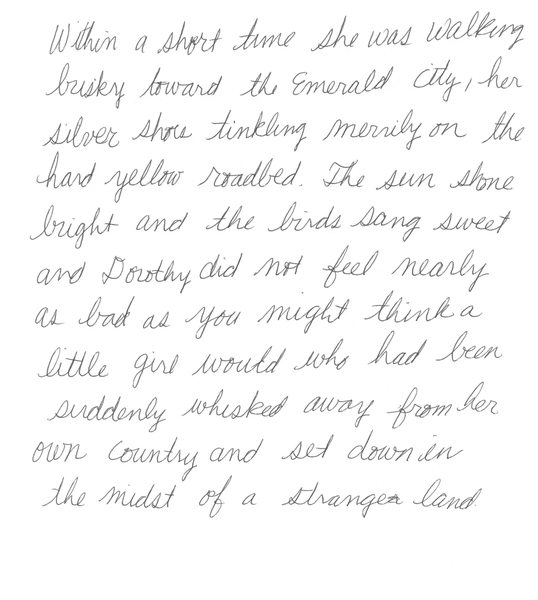 Within a short time she was walking
briskly toward the Emerald City, her
silver shoes tinkling merrily on the
hard yellow roadbed. The sun shone
bright and the birds sang sweet
and Dorothy did not feel nearly
as bad as you might think a
little girl would who had been
suddenly whisked away from her
own country and set down in
the midst of a strange land.